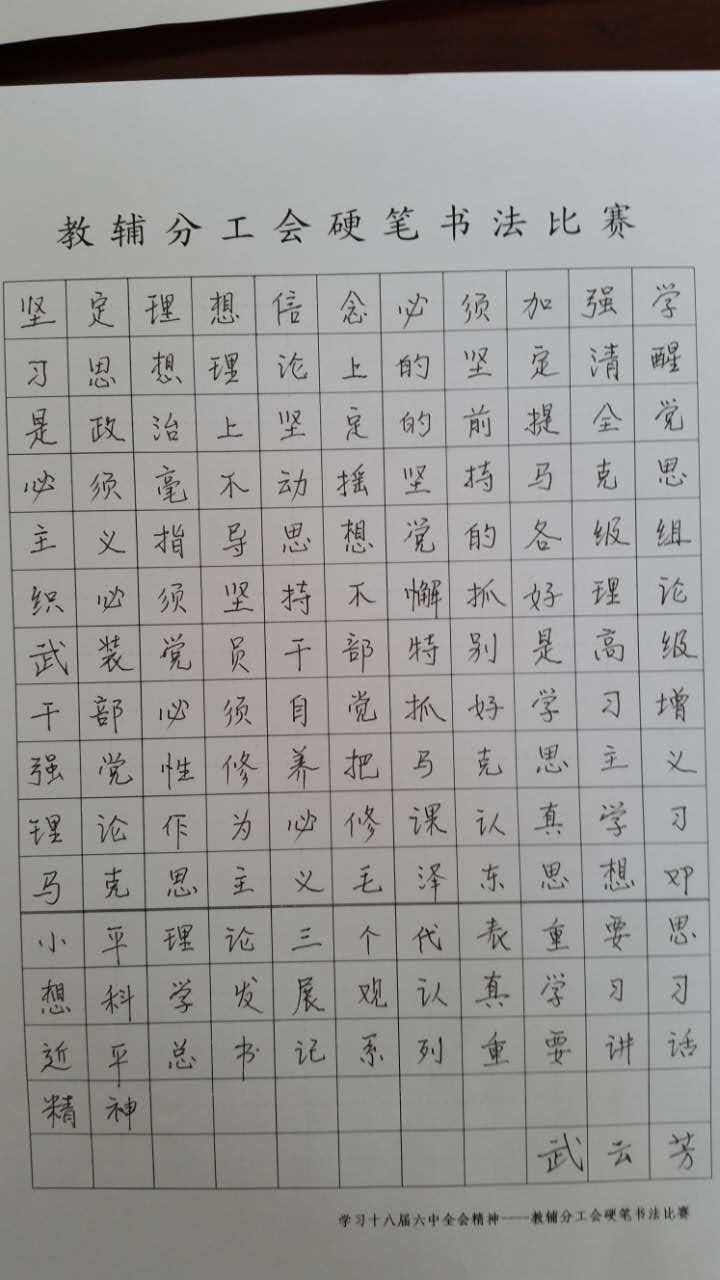 教辅分工会硬笔书法比赛
坚定理想信念必须加强学
习思想理论上的坚定清醒
是政治上坚定的前提全党
必须毫不动摇坚持马克思
主义指导思想党的各级组
织必须坚持不懈抓好理论
武装党员干部特别是高级
干部必须自觉抓好学习增
强党性修养把马克思主义
理论作为必修课认真学习
马克思主义毛泽东思想邓
小平理论三个代表重要思
想科学发展观认真学习习
近平总书记系列重要讲话
精神
武云芳
学习十八届六中全会精神——教辅分工会硬笔书法比赛